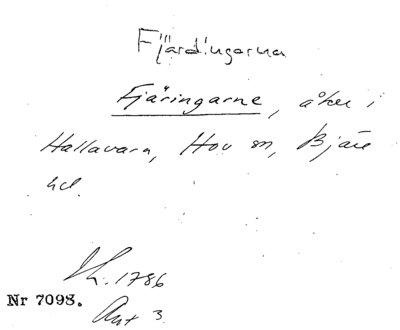 Fjärdingarna
Fjäringarne, åker i
Hallavara, Hov sn, Bjäre
hd.
Sk. 1786
Nr 7098.
Akt 3